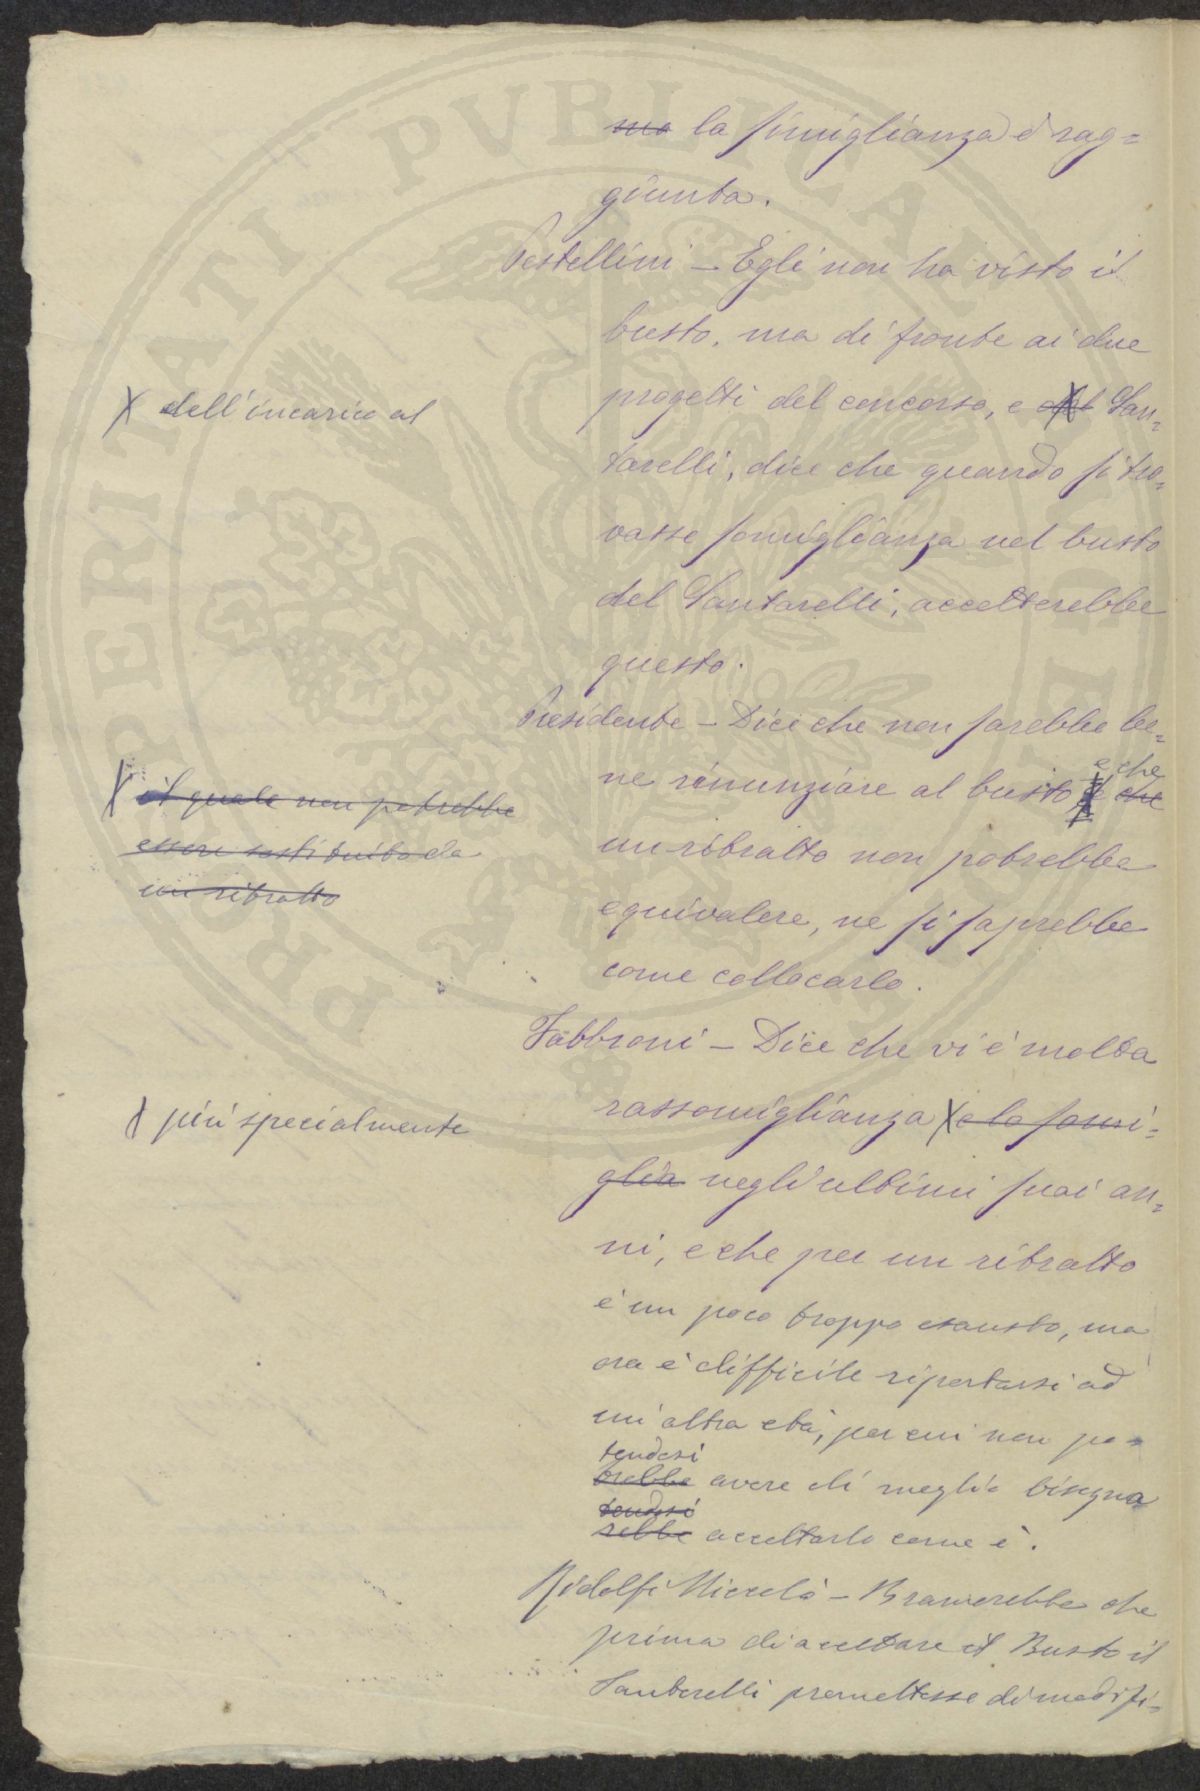 ma la simiglianza è rag=
giunta.
Pestellini - Egli non ha visto il
busto, ma di fronte ai due
progetti del concorso, e del San=
X dell'incarico al
tarelli, dice che quando si tro=
vasse somiglianza nel busto
del Santarelli, accetterebbe
questo.
Presidente - Dice che non sarebbe be=
ne rinunziare al busto e che
e che
X il quale non potrebbe
essere sostituito da
un ritratto
un ritratto non potrebbe
equivalere, ne si saprebbe
come collocarlo.
Fabbroni - Dice che vi è molta
rassomiglianza X e la fami=
X più specialmente
glia negli ultimi suoi an=
ni, e che per un ritratto
è un poco troppo esausto, ma
ora è difficile riportarsi ad
un' altra età, per cui non po=
tendosi
trebbe avere di meglio bisogna
tendosi
rebbe accettarlo come è.
Ridolfi Niccolò - Bramerebbe che
prima di accettare il Busto il
Santarelli promettesse di modifi=
PERITATI PUBLICAE